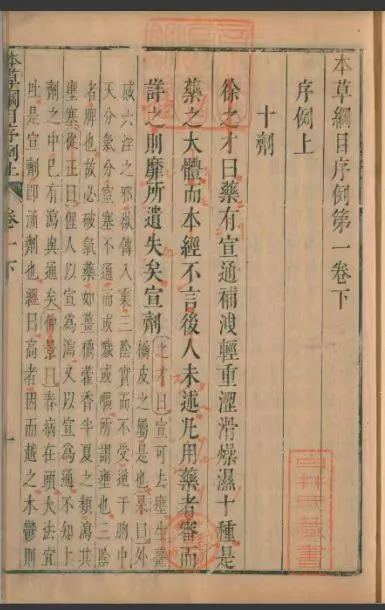 本草綱目序例第一卷下
序例上
十劑
徐之才曰藥有宣通補洩輕重澀滑燥濕十種是
藥之大體而本經不言後人未述凡用藥者審而
詳之則靡所遺失矣宣劑
之才曰宣可去壅生薑
橘皮之屬是也杲曰外
感六淫之邪欲傳入裏三陰實而不受逆于胸中
天分氣分窒塞不通而或噦或嘔所謂壅也三陰
者脾也故必破氣藥如薑橘藿香半夏之類瀉其
壅塞從正曰俚人以宣為瀉又以宣為通不知十
劑之中已有瀉與通矣仲景曰春病在頭大法宜
吐是宣劑即涌劑也經曰高者因而越之木鬱則
本草綱目序例上
卷一下
一